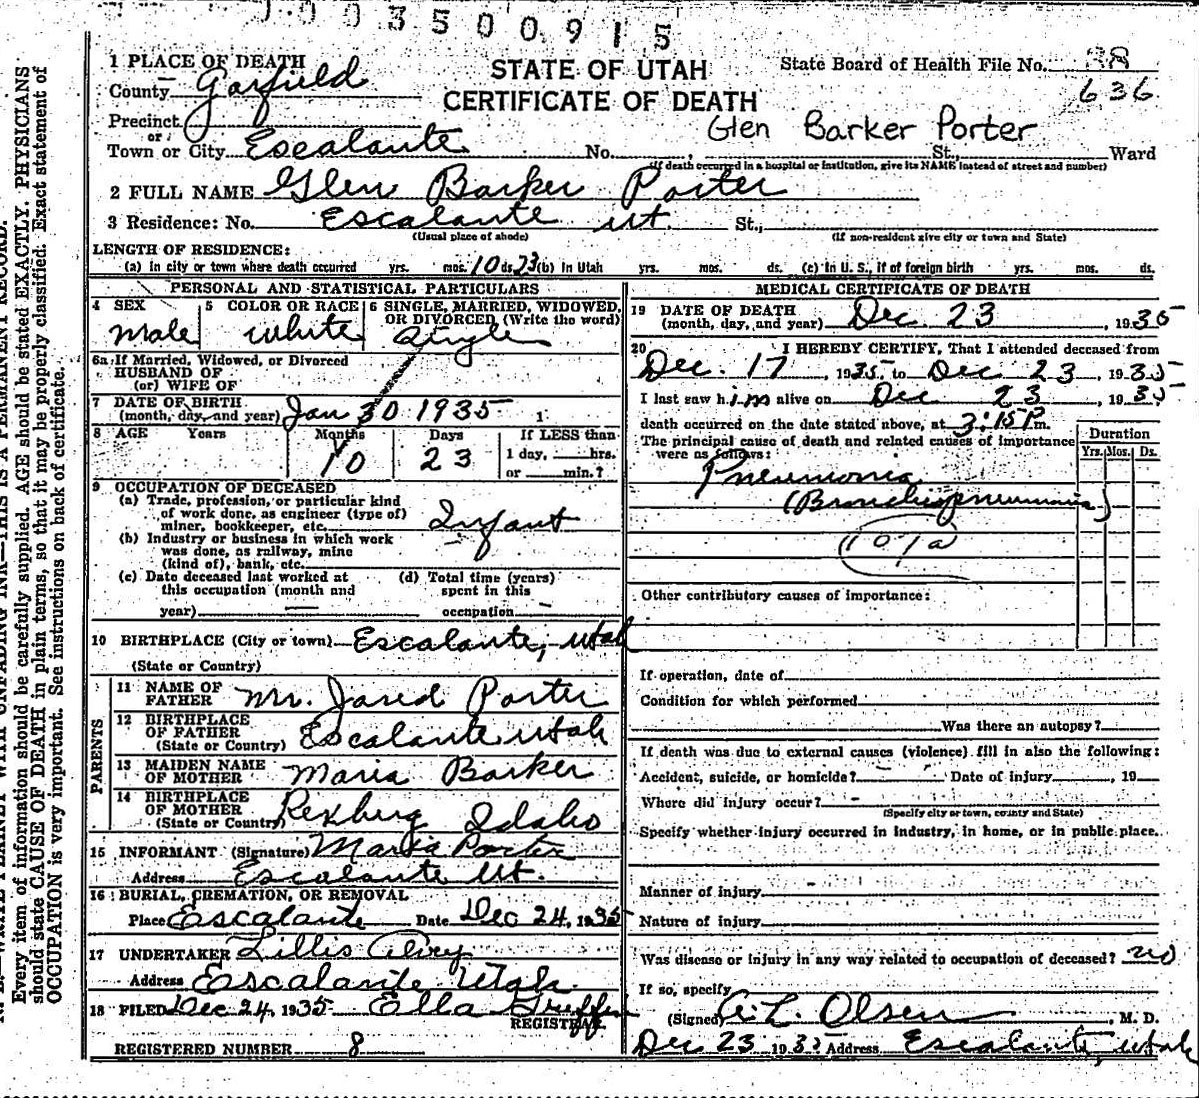 003500915
1 PLACE OF DEATH
STATE OF UTAH
State Board of Health File No. 38
County Garfield
CERTIFICATE OF DEATH
636
Precinct
Glen Barker Porter
or
Town or City Escalante No. , St., Ward
(If death occurred in a hospital or institution, give its NAME instead of street and number)
2 FULL NAME Glen Barker Porter
3 Residence: No. Escalante ut. St.,
(Usual place of abode) (If non-resident give city or town and State)
LENGTH OF RESIDENCE:
(a) In city or town where death occurred yrs. mos. 10 ds. 23 (b) In Utah yrs. mos. ds. (c) In U. S., if of foreign birth yrs. mos. ds.
PERSONAL AND STATISTICAL PARTICULARS
4 SEX 5 COLOR OR RACE 6 SINGLE, MARRIED, WIDOWED, OR DIVORCED (Write the word)
Male white Single
6a If Married, Widowed, or Divorced
HUSBAND OF
(or) WIFE OF
7 DATE OF BIRTH
(month, day, and year) Jan 30 1935 1
8 AGE Years Months Days If LESS than
10 23 1 day, hrs.
or min.?
9 OCCUPATION OF DECEASED
(a) Trade, profession, or particular kind
of work done, as engineer (type of)
miner, bookkeeper, etc. Infant
(b) Industry or business in which work
was done, as railway, mine
(kind of), bank, etc.
(c) Date deceased last worked at (d) Total time (years)
this occupation (month and spent in this
year) occupation
10 BIRTHPLACE (City or town) Escalante, Utah
(State or Country)
PARENTS
11 NAME OF
FATHER Mr. Jared Porter
12 BIRTHPLACE
OF FATHER
(State or Country) Escalante Utah
13 MAIDEN NAME
OF MOTHER Maria Barker
14 BIRTHPLACE
OF MOTHER
(State or Country) Rexburg Idaho
15 INFORMANT (Signature) Maria Porter
Address Escalante Ut.
16 BURIAL, CREMATION, OR REMOVAL
Place Escalante Date Dec 24, 1935
17 UNDERTAKER Lillis
Address Escalante Utah
18 FILED Dec 24, 1935 Ella Griffin
REGISTRAR.
REGISTERED NUMBER 8
MEDICAL CERTIFICATE OF DEATH
19 DATE OF DEATH
(month, day, and year) Dec. 23, 1935
20 I HEREBY CERTIFY, That I attended deceased from
Dec. 17, 1935, to Dec 23, 1935
I last saw him alive on Dec 23, 1935
death occurred on the date stated above, at 3:15 P m.
The principal cause of death and related causes of importance
were as follows:
Duration
Yrs. Mos. Ds.
Pneumonia
(Bronchiopneumonia)
107a
Other contributory causes of importance:
If operation, date of
Condition for which performed
Was there an autopsy?
If death was due to external causes (violence) fill in also the following:
Accident, suicide, or homicide? Date of injury , 19
Where did injury occur?
(Specify city or town, county and State)
Specify whether injury occurred in industry, in home, or in public place.
Manner of injury
Nature of injury
Was disease or injury in any way related to occupation of deceased? no
If so, specify
(Signed) A. L. Olsen, M. D.
Dec 23 193 Address Escalante, Utah
Every item of information should be carefully supplied. AGE should be stated EXACTLY. PHYSICIANS
should state CAUSE OF DEATH in plain terms, so that it may be properly classified. Exact statement of
OCCUPATION is very important. See instructions on back of certificate.